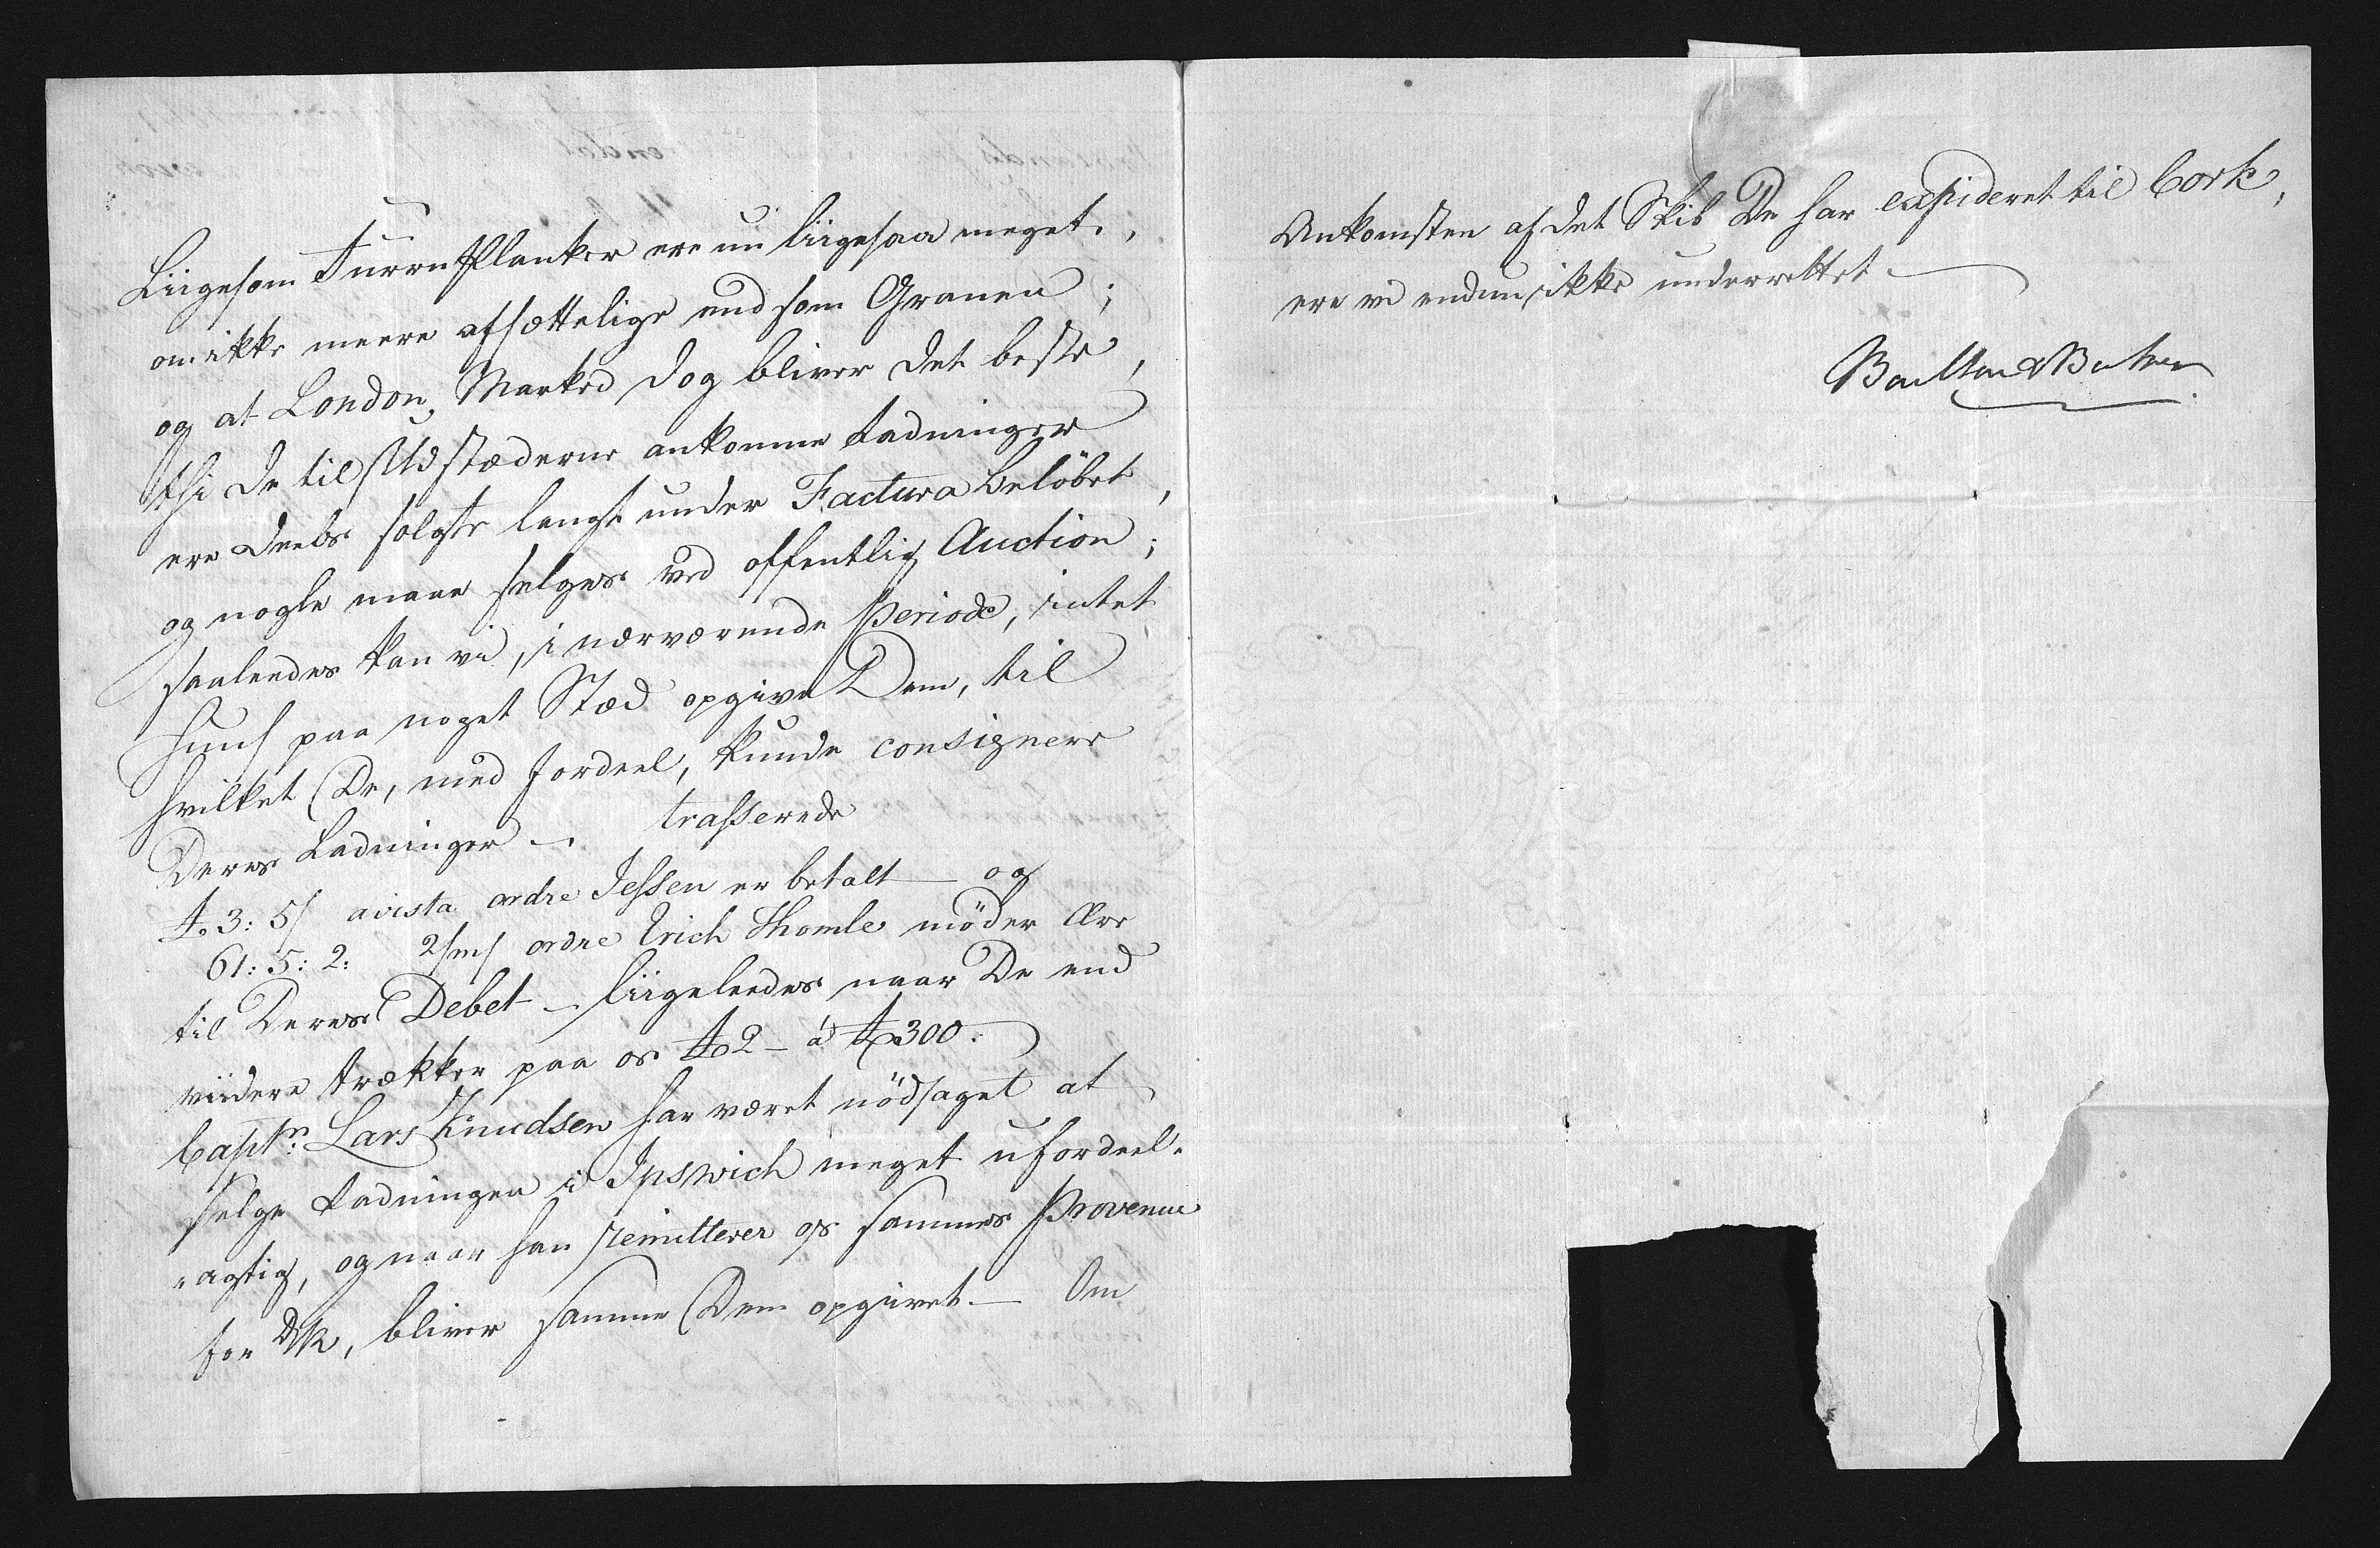 Liigesom Furru Planker ere nu liigesaa meget,
om ikke meere afsættelige end som Granen;
og at London Marked dog bliver det beste,
thi de til Udstæderne ankomne Ladninger
ere Deels solgte langt under Factura beløbet,
og nogle maae selges ved offentlig Auction;
saaleedes kan vi, i nærværende Periode, intet
Huus paa noget Stæd opgive Dem, til
hvilket De, med Fordeel, kunde consignere
Deres Ladninger — trasserede
£ 3: 5/ avista ordre Jessen er betalt — og
61: 5: 2: 2/m/ ordre Erich Thomle møder Ære
til Deres Debet — liigeleedes naar De end
viidere trækker paa os £ 2 — à £ 300.
Captn: Lars Knudsen har været nödsaget at
selge Ladningen i Ipswich meget ufordeel-
agtig, og naar han remitterer os sammes Provenue
for DR, bliver samme Dem opgivet. — Om
Ankomsten af det Skib De har expideret til Cork,
ere vi endnu ikke underrettet —